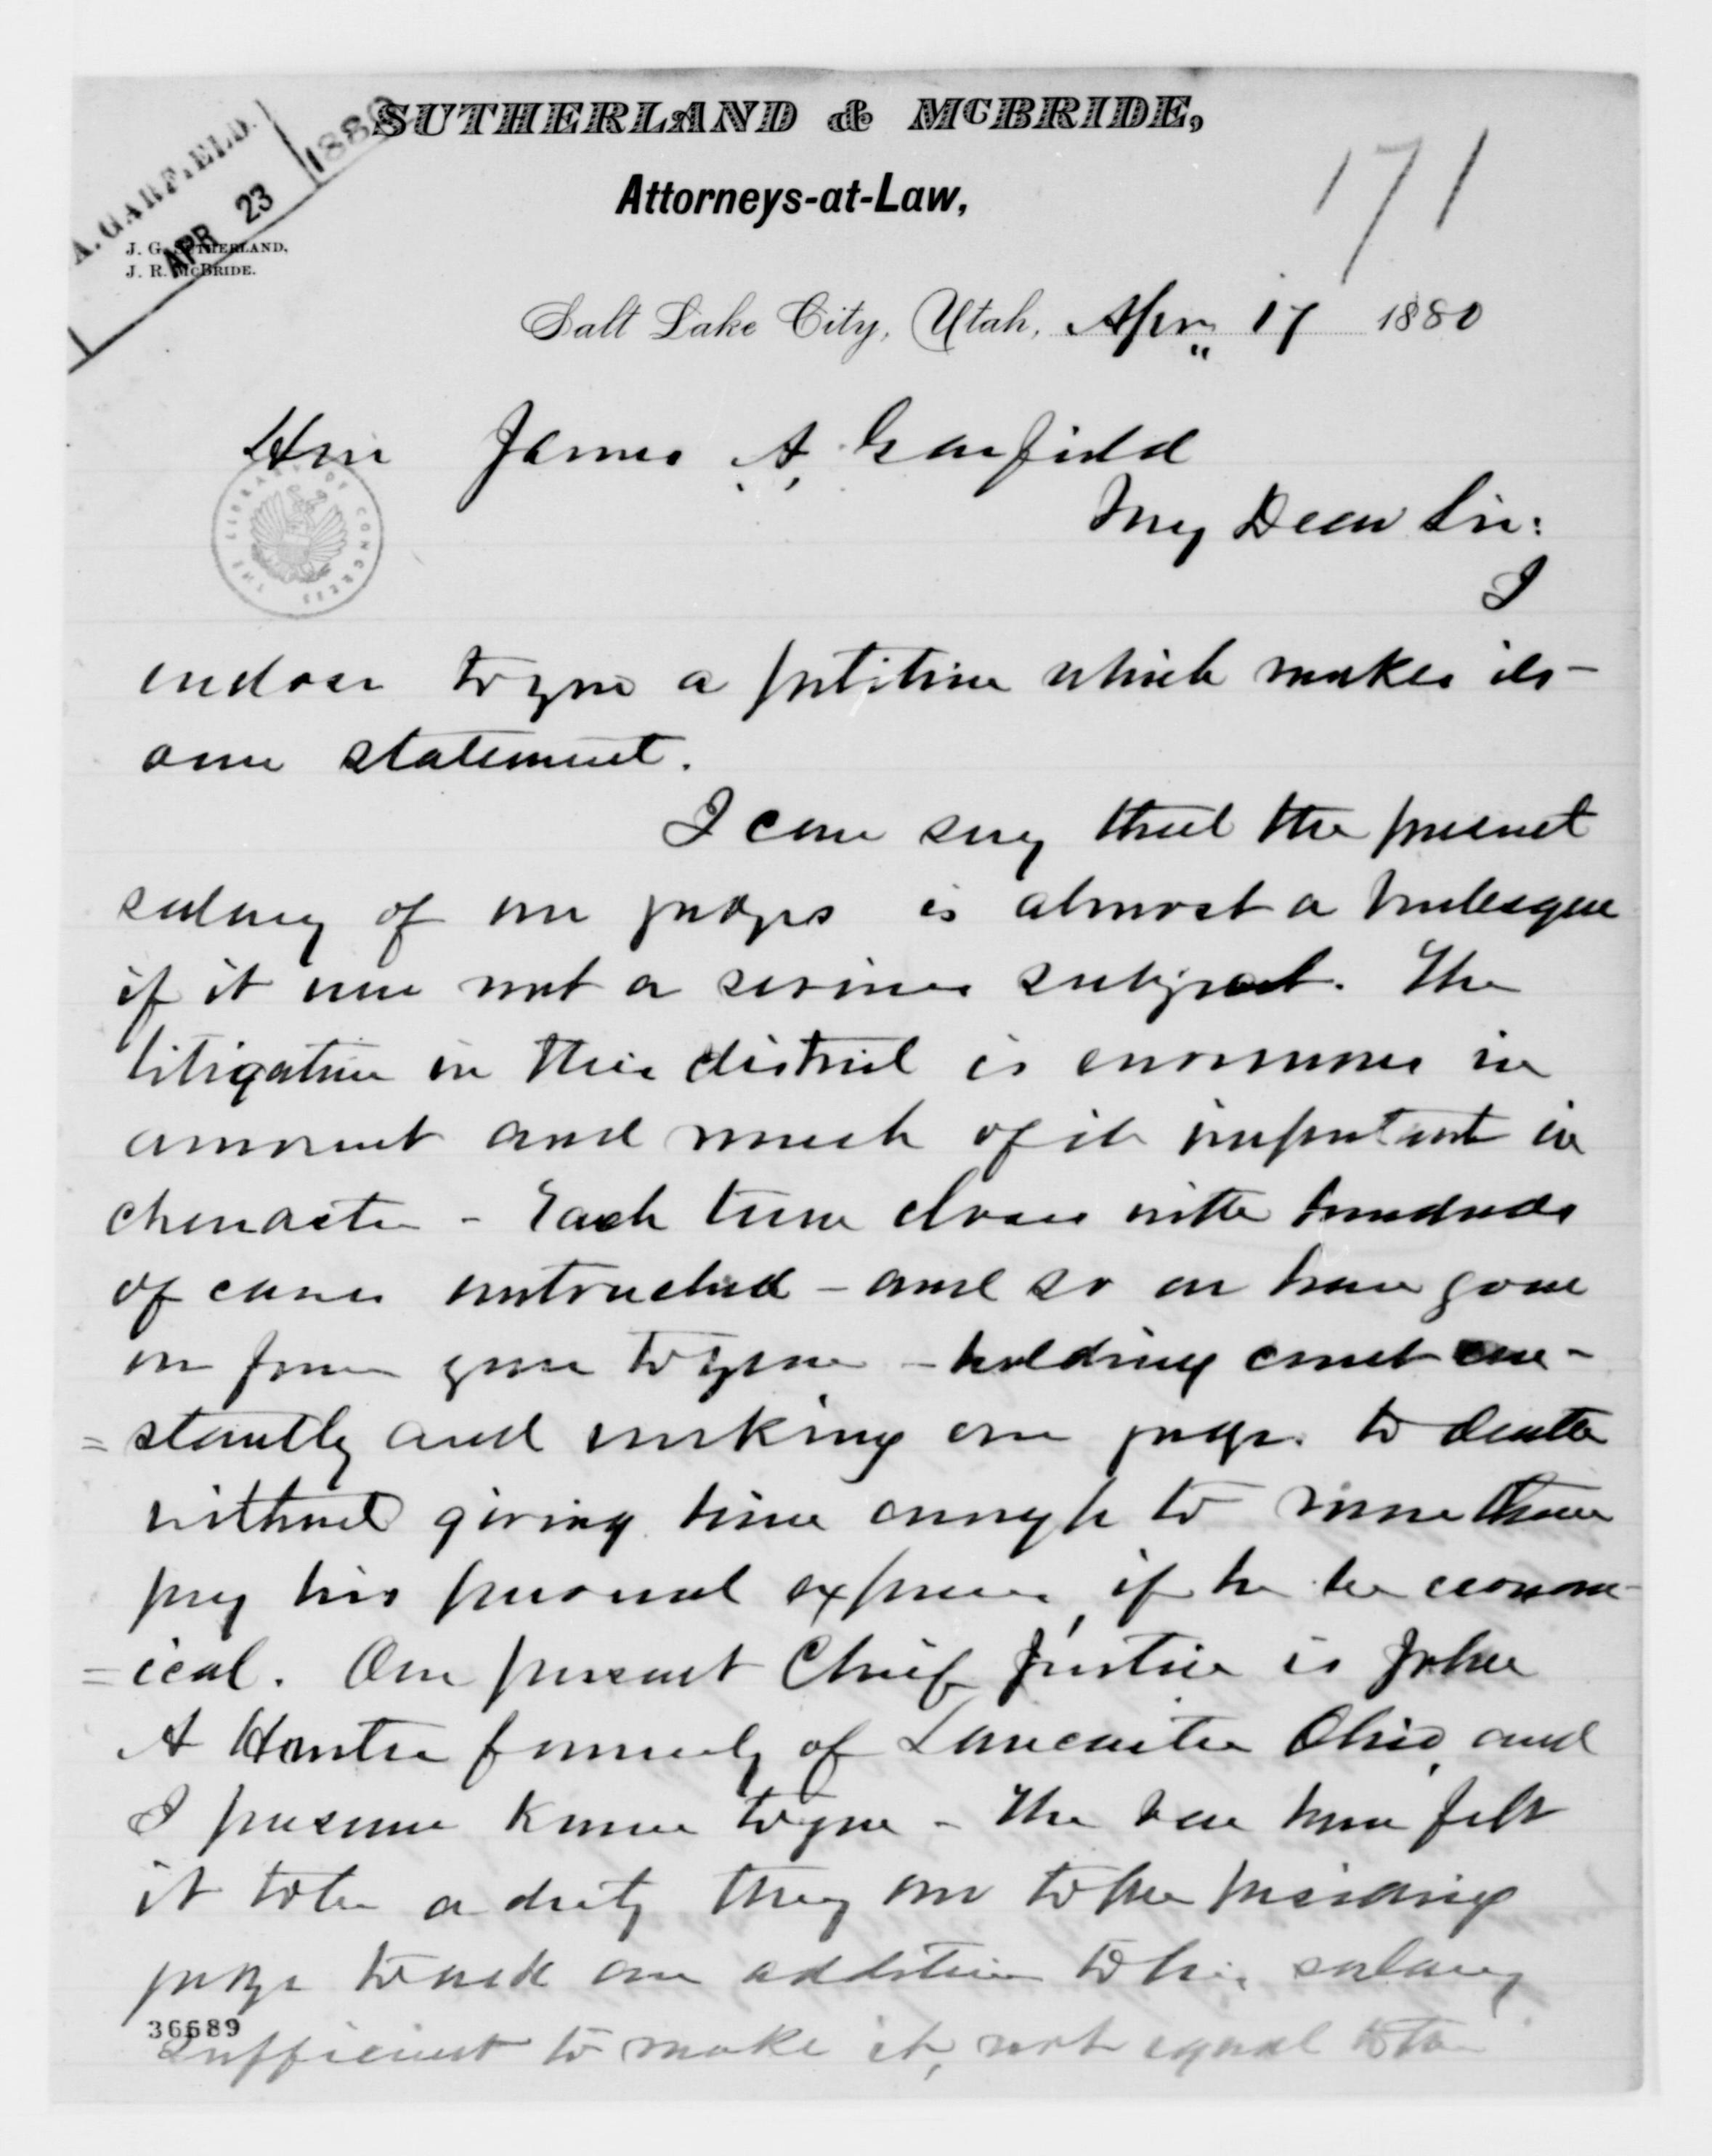 SUTHERLAND & McBRIDE,
Attorneys-at-Law,
A. GARFIELD.
APR 23
1880
171
J. G. SUTHERLAND,
J. R. McBRIDE.
Salt Lake City, Utah, Apr 17 1880
Hon James A. Garfield
My Dear Sir:
I
enclose to you a petition which makes its
own statement.
I can say that the present
salary of our judges is almost a burlesque
if it were not a serious subject. The
litigation in this district is enormous in
amount and much of it important in
character - Each term closes with hundreds
of cases untouched - and so we have gone
on from year to year - holding court con-
=stantly and working our judge to death
without giving him enough to more than
pay his personal expenses, if he be econom-
=ical. Our present Chief Justice is John
A Hunter formerly of Lancaster Ohio, and
I presume known to you - The bar have felt
it to be a duty they owe to the presiding
judge to ask an addition to his salary
36689
sufficient to make it, not equal to the
THE LIBRARY OF CONGRESS